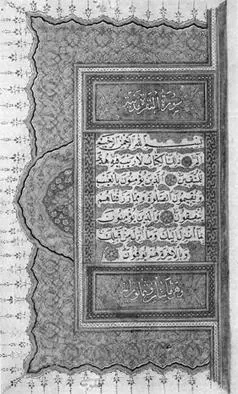 سورة البقرة
بسم الله الرحمن الرحيم
الم ذلك الكتاب لا ريب فيه هدى
للمتقين الذين يؤمنون بالغيب
ويقيمون الصلوة ومما رزقناهم
ينفقون والذين يؤمنون
بما أنزل إليك وما أنزل من قبلك
وبالآخرة هم يوقنون